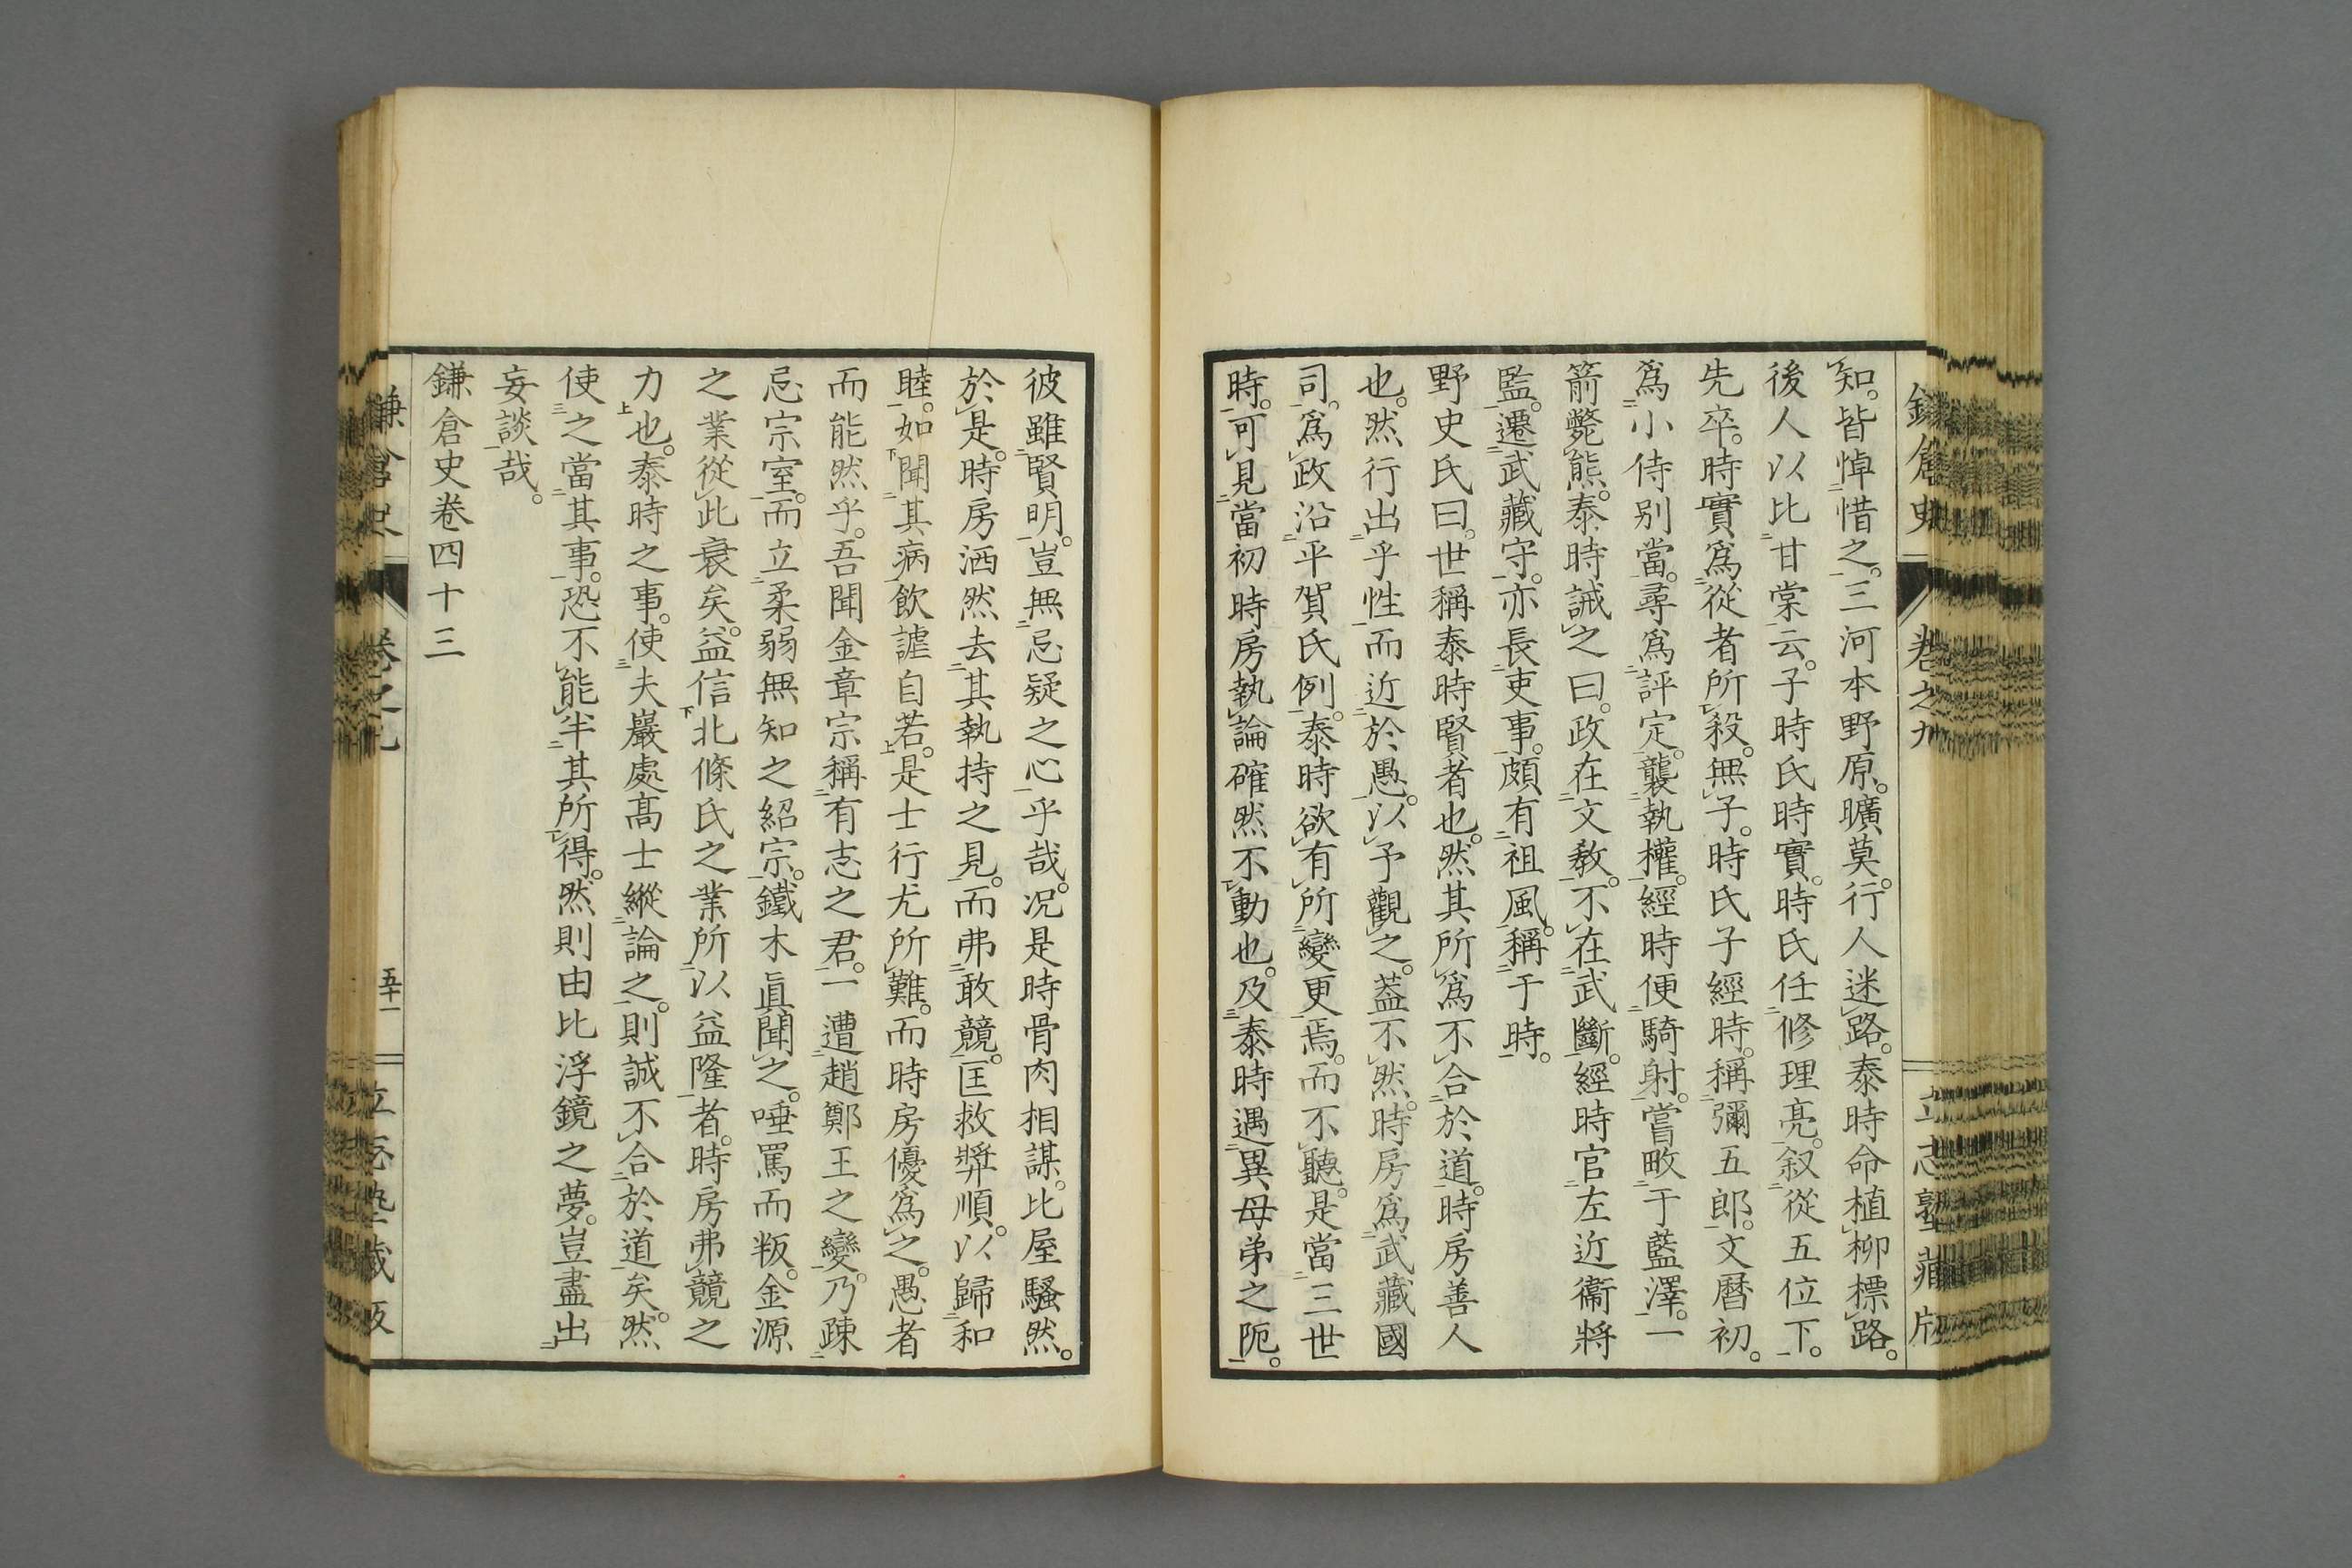 鎌倉史 卷之九 立志塾藏版
知。皆悼惜之。三河本野原。曠莫。行人迷路。泰時命植柳標路。
後人以比甘棠云。子時氏時實。時氏任修理亮。叙從五位下。
先卒。時實爲從者所殺。無子。時氏子經時。稱彌五郎。文曆初。
爲小侍別當。尋爲評定。襲執權。經時便騎射。嘗畋于藍澤。一
箭斃熊。泰時誡之曰。政在文敎。不在武斷。經時官左近衞將
監。遷武藏守。亦長吏事。頗有祖風。稱于時。
野史氏曰。世稱泰時賢者也。然其所爲不合於道。時房善人
也。然行出乎性而近於愚。以予觀之。葢不然。時房爲武藏國
司。爲政沿平賀氏例。泰時欲有所變更焉。而不聽。是當三世
時。可見當初時房執論確然不動也。及泰時遇異母弟之阨。
彼雖賢明。豈無忌疑之心乎哉。况是時骨肉相謀。比屋騷然。
於是。時房洒然去其執持之見。而弗敢競。匡救弉順。以歸和
睦。如聞其病飲謔自若。是士行尤所難。而時房優爲之。愚者
而能然乎。吾聞金章宗稱有志之君。一遭趙鄭王之變。乃疎
忌宗室。而立柔弱無知之紹宗。鐵木眞聞之。唾罵而叛。金源
之業從此衰矣。益信北條氏之業所以益隆者。時房弗競之
力也。泰時之事。使夫巖處高士縱論之。則誠不合於道矣。然
使之當其事。恐不能半其所得。然則由比浮鏡之夢。豈盡出
妄談哉。
鎌倉史卷四十三
鎌倉史 卷之九 五十一 立志塾藏版